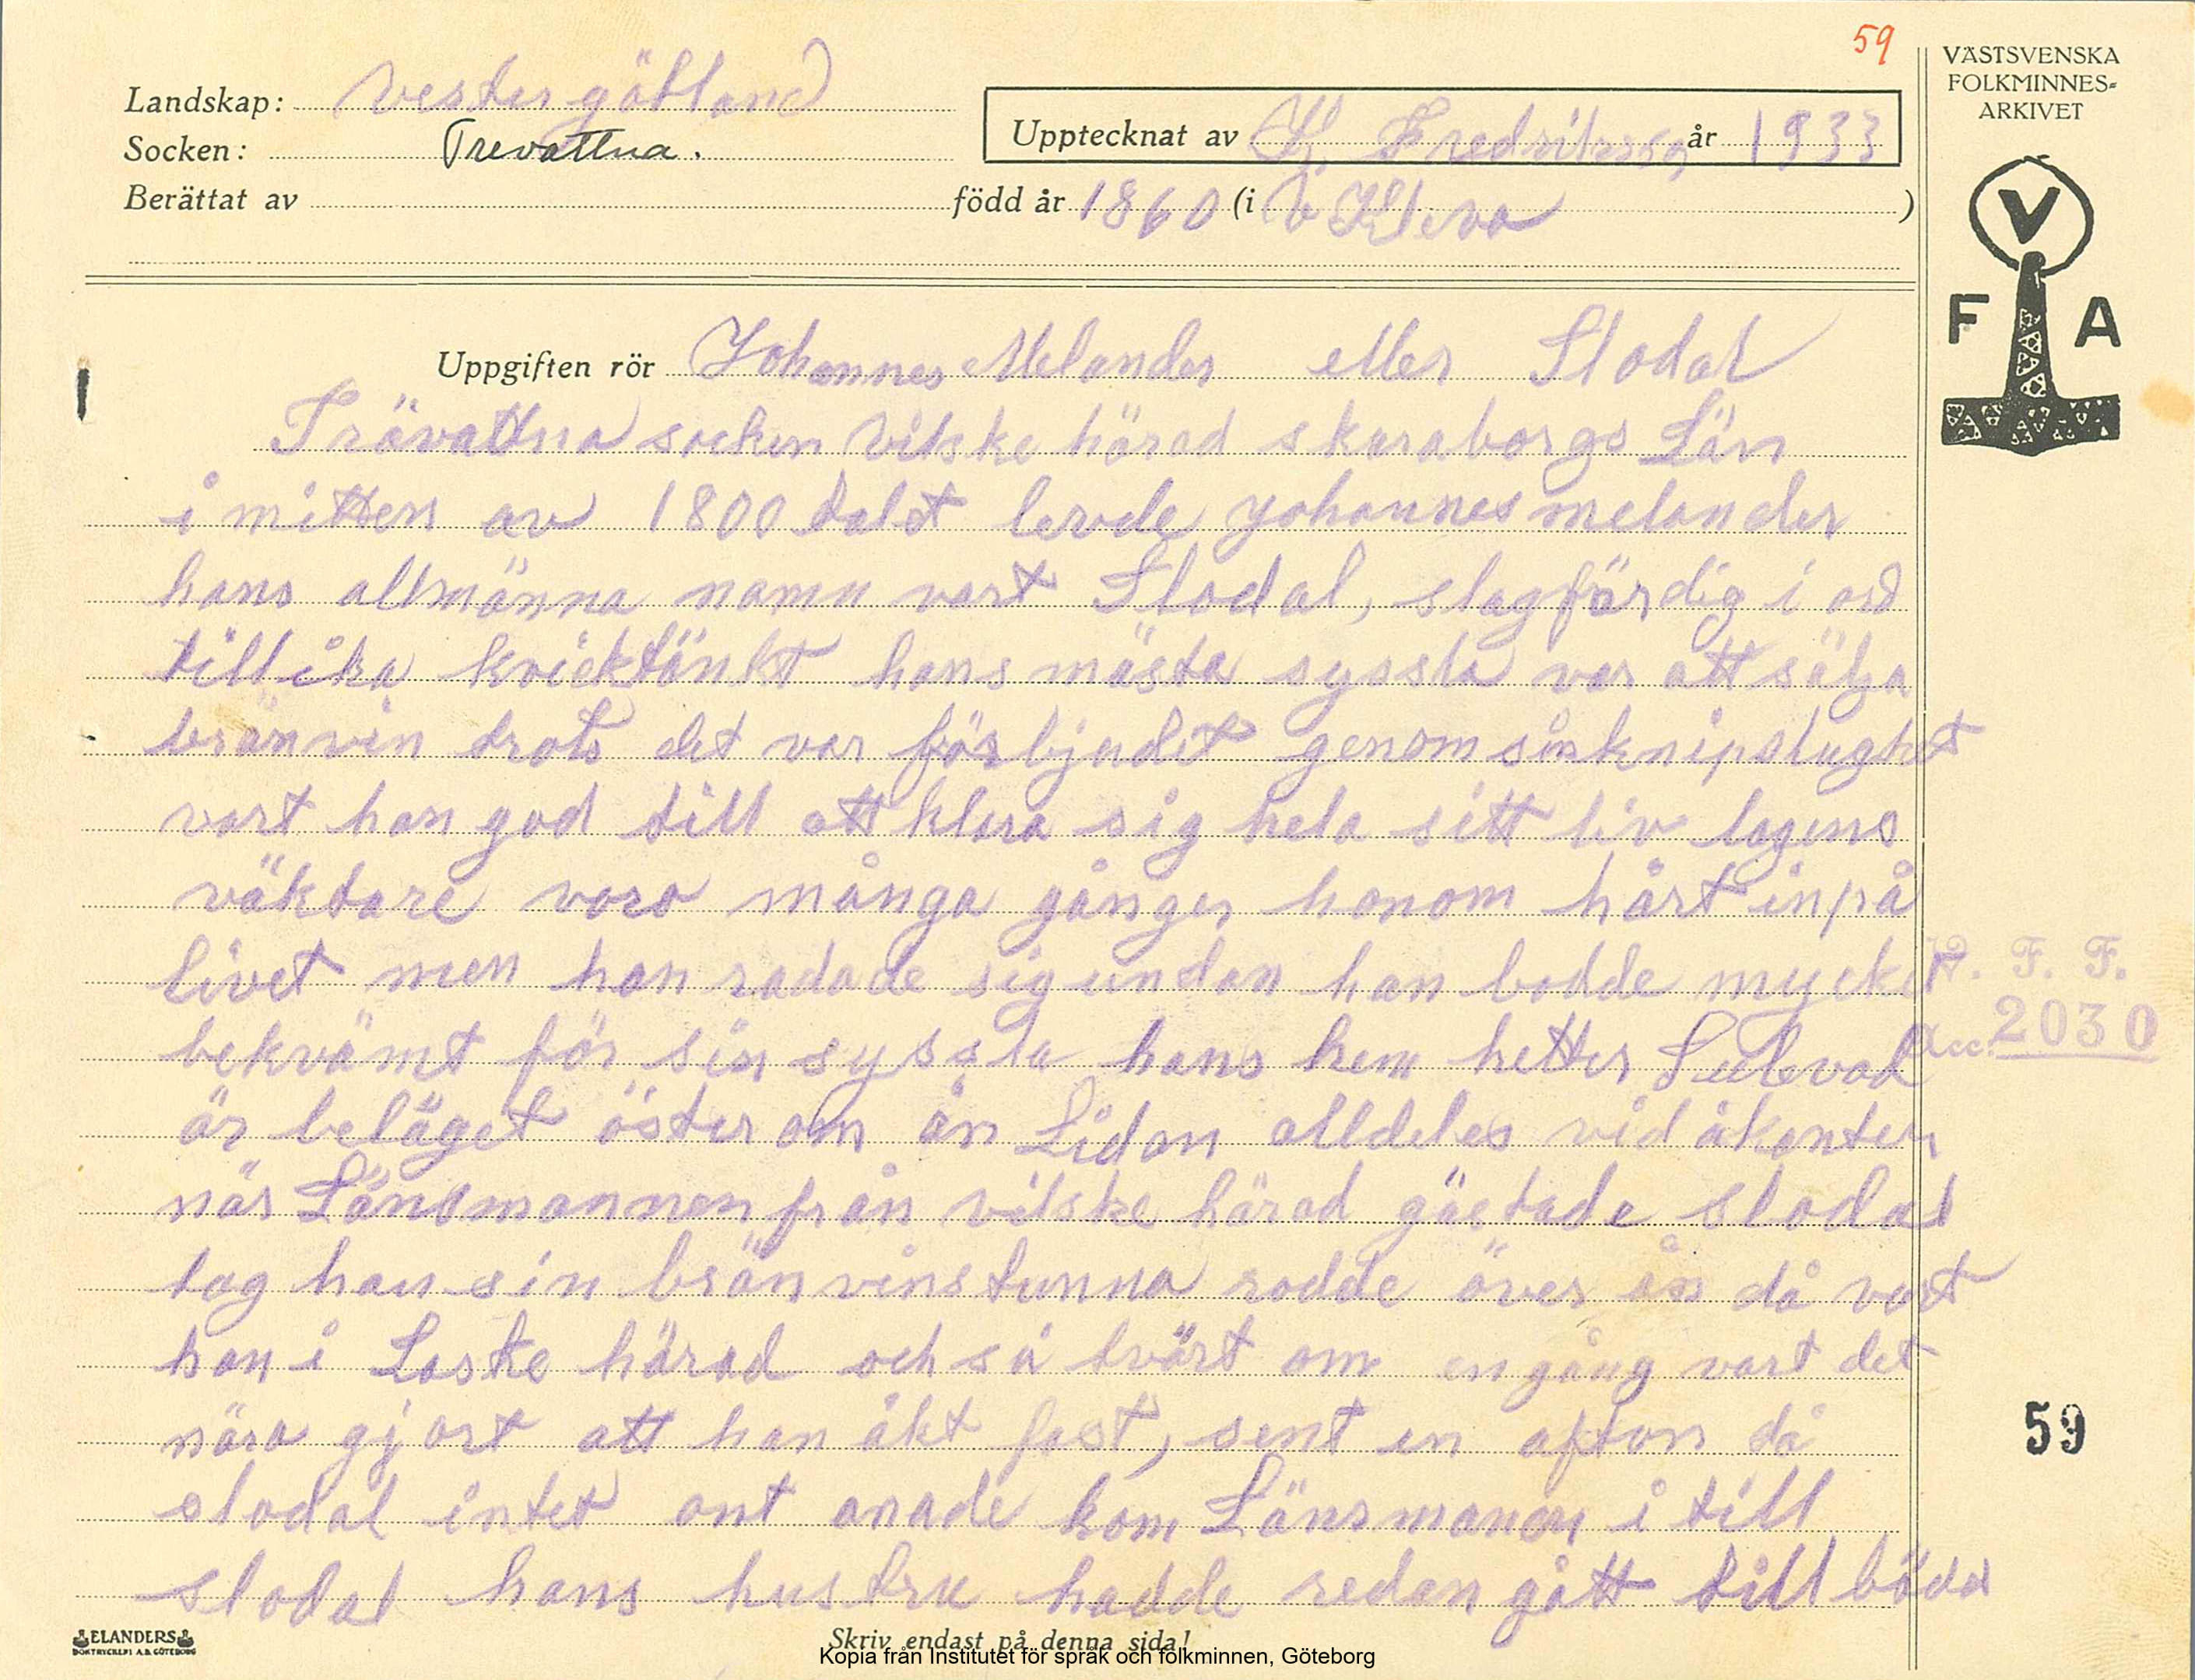 59
VÄSTSVENSKA
FOLKMINNES=
ARKIVET
Landskap: Vestergötland
Socken: Trevattna.
Upptecknat av Fredriksson år 1933
Berättat av född år 1860 (i V Kleva )
V
F A
Uppgiften rör Johannes Melander eller Slodal
Trävattna socken Vilske härad skaraborgs Län
i mitten av 1800 talet levde johannes melander
hans allmänna namn vart Slodal, slagfärdig i ord
tillika kvicktänkt hans mästa syssla var att sälja
bränvin trots det var förbjudet genom sin knipslughet
vart han god till att klara sig hela sitt liv lagens
väktare voro många gånger honom hårt inpå
livet men han radade sig undan han bodde mycket
bekvämt för sin syssla hans hem hetter
är beläget öster om ån Lidan alldeles vid åkanten
när Länsmannen från vilske härad gästade slodal
tog han sin bränvinstunna rodde över ån då vart
han i Laske härad och så tvärt om en gång vart det
nära gjort att han åkt fast, sent en afton då
slodal intet ont anade kom Länsmanen i till
slodal hans hustru hadde redan gått till bädd
V. F. F.
Acc. 2030
59
ELANDERS
BOKTRYCKERI A.B. GÖTEBORG
Skriv endast på denna sida!
Kopia från Institutet för språk och folkminnen, Göteborg